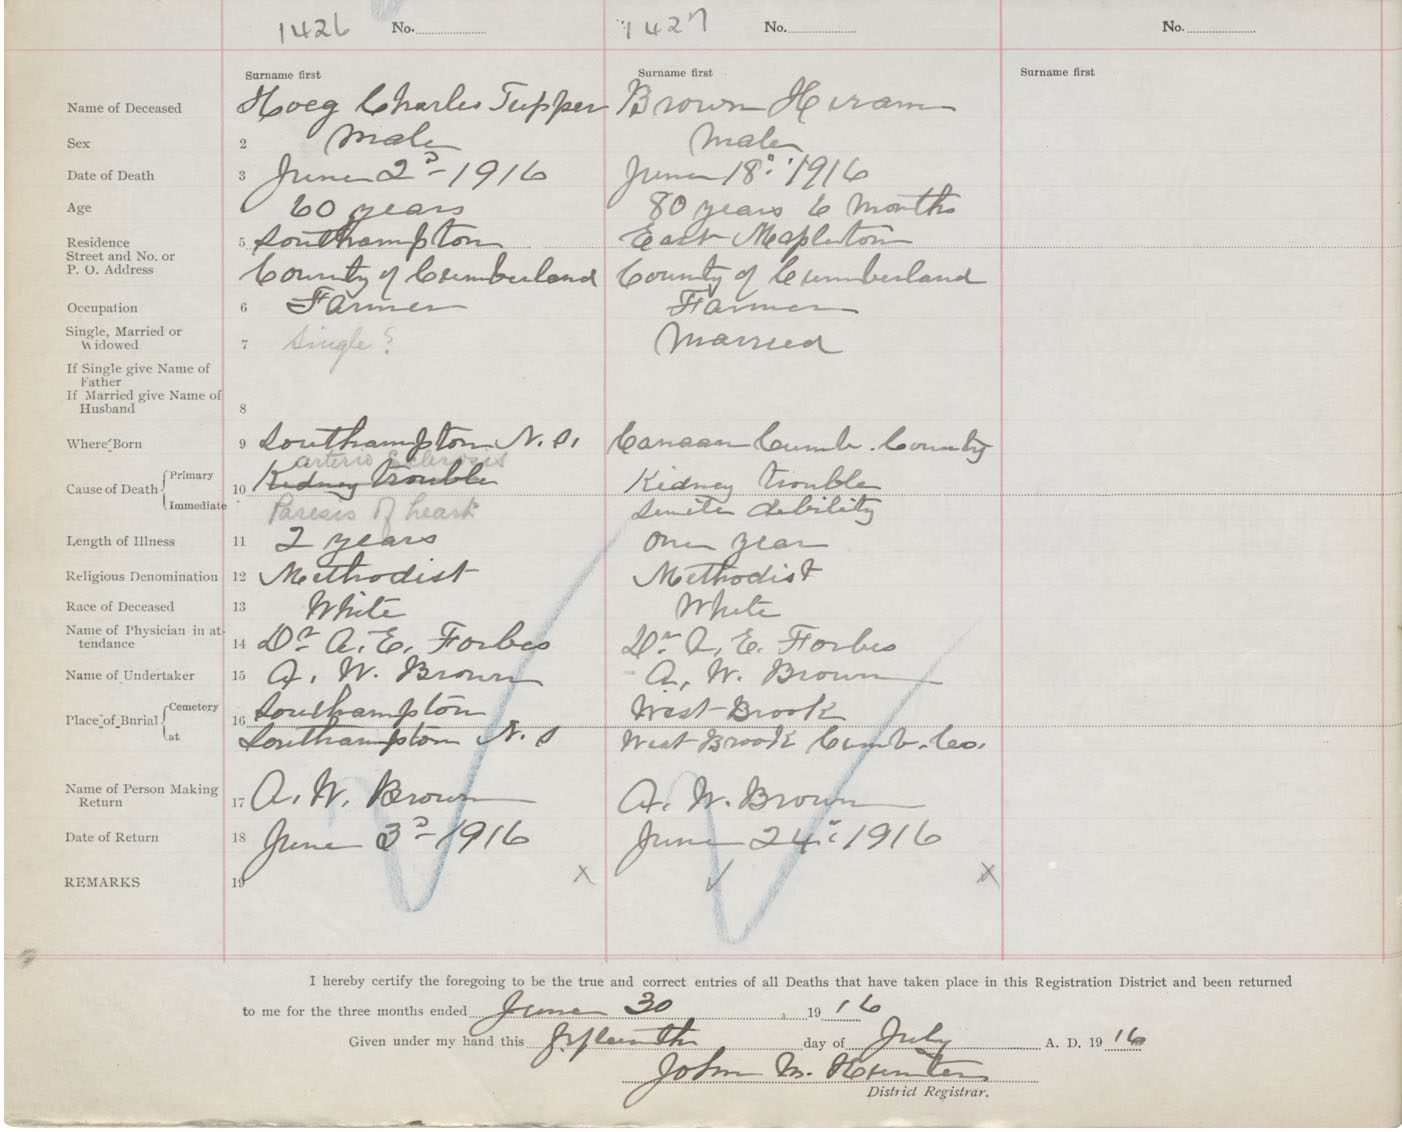 1426 No. 1427 No. No.
Surname first Surname first Surname first
Name of Deceased Hoeg Charles Tupper Brown Hiram
Sex 2 Male Male
Date of Death 3 June 2d 1916 June 18" 1916
Age 60 years 80 years 6 Months
Residence 5 Southampton East Mapleton
Street and No. or
P. O. Address County of Cumberland County of Cumberland
Occupation 6 Farmer Farmer
Single, Married or
Widowed 7 Single? Married
If Single give Name of
Father
If Married give Name of
Husband 8
Where Born 9 Southampton N.S. Canaan Cumb. County
arterio Sclerosis
Cause of Death Primary 10 Kidney trouble Kidney trouble
Immediate Paresis of heart Senile debility
Length of Illness 11 2 years One year
Religious Denomination 12 Methodist Methodist
Race of Deceased 13 White White
Name of Physician in at-
tendance 14 Dr A. E. Forbes Dr A. E. Forbes
Name of Undertaker 15 A. W. Brown A. W. Brown
Place of Burial Cemetery 16 Southampton West Brook
at Southampton N. S West Brook Cumb. Co.
Name of Person Making
Return 17 A. W. Brown A. W. Brown
Date of Return 18 June 3d 1916 June 24" 1916
REMARKS 19 x ✓ x
I hereby certify the foregoing to be the true and correct entries of all Deaths that have taken place in this Registration District and been returned
to me for the three months ended June 30 1916
Given under my hand this fifteenth day of July A. D. 1916
John M. Hunter
District Registrar.